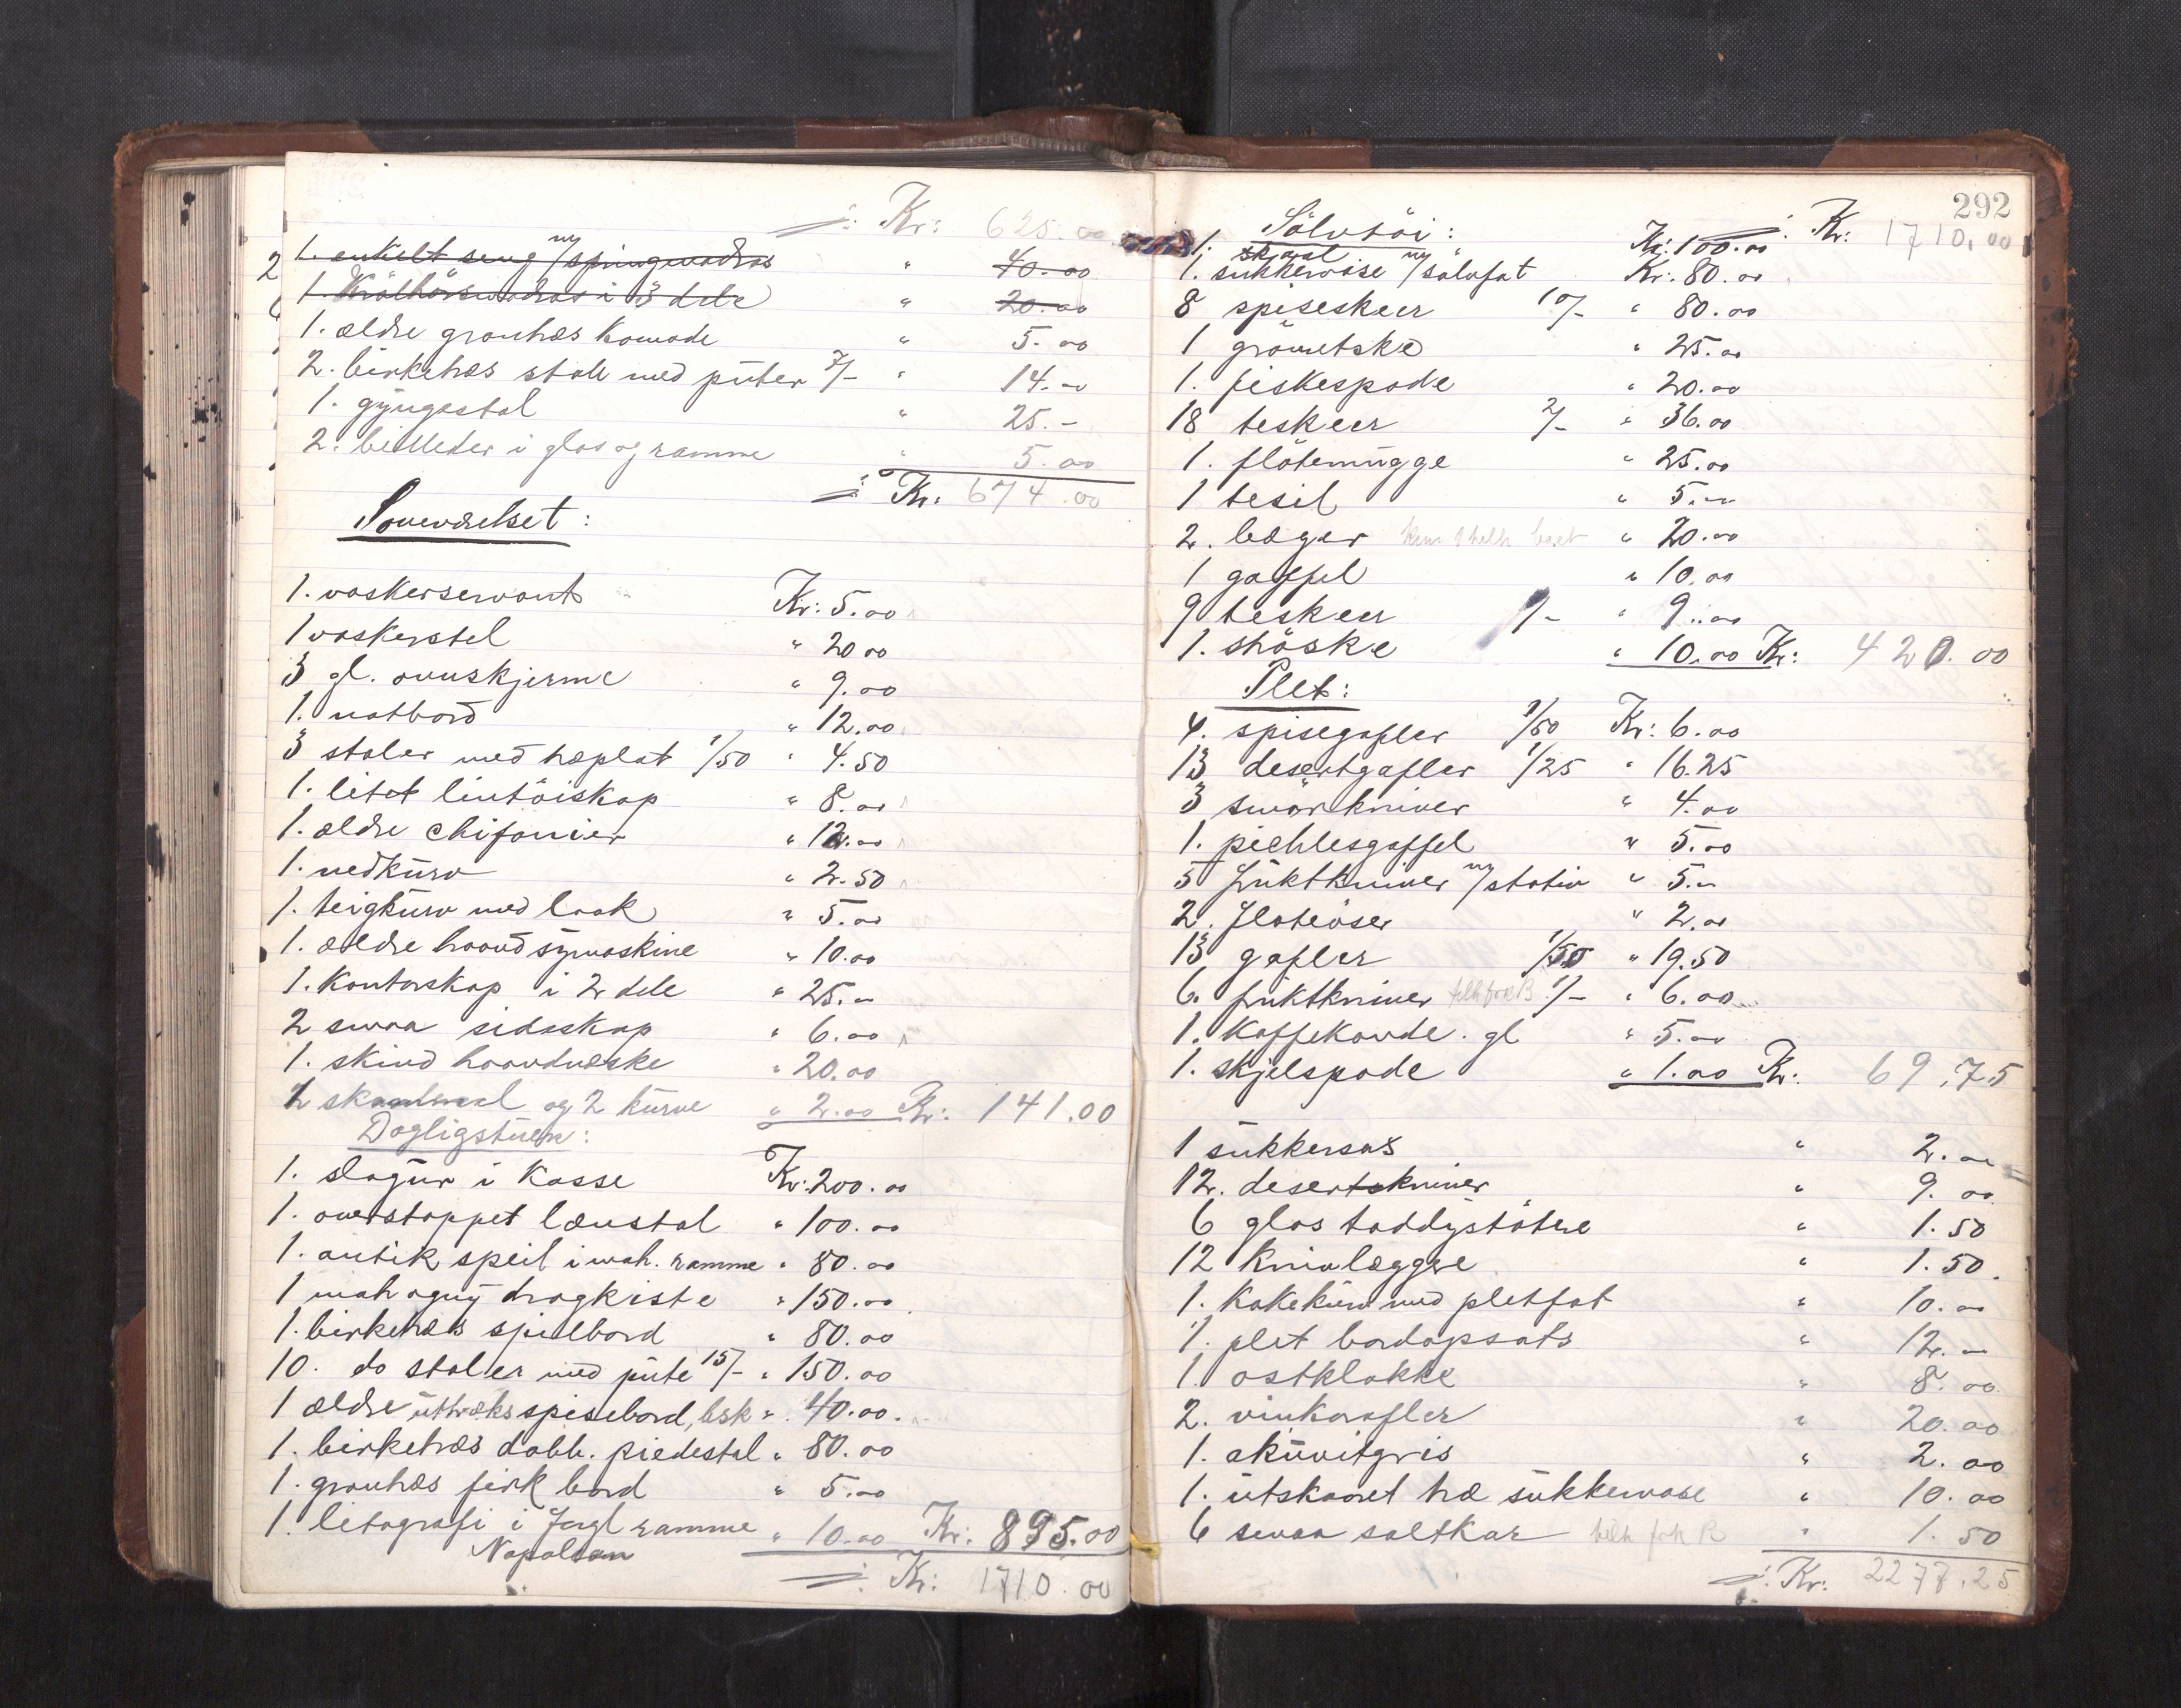 Kr: 625.00
1. enkelt seng m/springmadras " 40.00
1. Krölhårsmadras i 3 dele " 20.00
1. ældre grantræs Komode " 5.00
2. birketræs stole med puter 7/- " 14.-
1. gyngestol " 25.-
2. billeder i glas og ramme " 5.00
Kr: 674.00
Soveværelset:
1. vaskerservant Kr: 5.00
1 vaskerstel " 20.00
3 gl. ovnskjerme " 9.00
1. natbord " 12.00
3 stoler med træplat 1/50 " 4.50
1. litet lintöiskap " 8.00
1. ældre chifonier " 12.00
1. vedkurv " 2.50
1. teigkurv med laak " 5.00
1. ældre haandsymaskine " 10.00
1. Kontorskap i 2 dele " 25.-
2 smaa sidaskap " 6.00
1. skind haandvæske " 20.00
og 2 kurve " 2.00 Kr: 141.00
Dagligstuen:
1. slagur i Kasse Kr: 200.00
1. overstoppet lænstol " 100.00
1. antik speil i mah. ramme " 80.00
1 mahogny dragkiste " 150.00
1. birketræs spillbord " 80.00
10. do stoler med pute 15/- " 150.00
1 ældre uttræks spisebord, bsk " 40.00
1. birketræs dobb. piedestal " 80.00
1. grantræs firk bord " 5.00
1. litografi i forgl ramme " 10.00 Kr: 895.00
Napoleon
Kr: 1710.00
292
Sölvtöi: Kr: 1710,00
1. skjaal Kr: 100.00
1. sukkervase m/sölvfat Kr: 80.00
8 spiseskeer 10/- " 80.00
1 grönnetske " 25.00
1. fiskespade " 20.00
18 teskeer 2/- " 36.00
1. flötemugge " 25.00
1 tesil " 5.-
2. bæger " 20.00
1 gaffel " 10.00
9 teskeer 1/- " 9.00
1. ströske " 10.00 Kr: 420.00
Plet:
4. spisegafler 1/50 Kr: 6.00
13 desertgafler 1/25 " 16.25
3 smörkniver " 4.00
1. pichlesgaffel " 5.00
5 fruktkniver m/stativ " 5.-
2. flöteöser " 2.00
13 gafler 1/50 " 19.50
6. fruktkniver 1/- " 6.00
1. Kaffekande. gl " 5.00
1. skjelspade " 1.00 Kr: 69,75
1 sukkersax " 2.00
12. desertskniver " 9.00
6 glas toddystötere " 1.50
12 Knivlæggere " 1.50
1. Kakekurv med pletfat " 10.00
1. plet bordopsats " 12.-
1. ostklokke " 8.00
2. vinkarafler " 20.00
1. akuvitgris " 2.00
1. utskaaret træ sukkervase " 10.00
6 smaa saltkar " 1.50
Kr: 2277.25